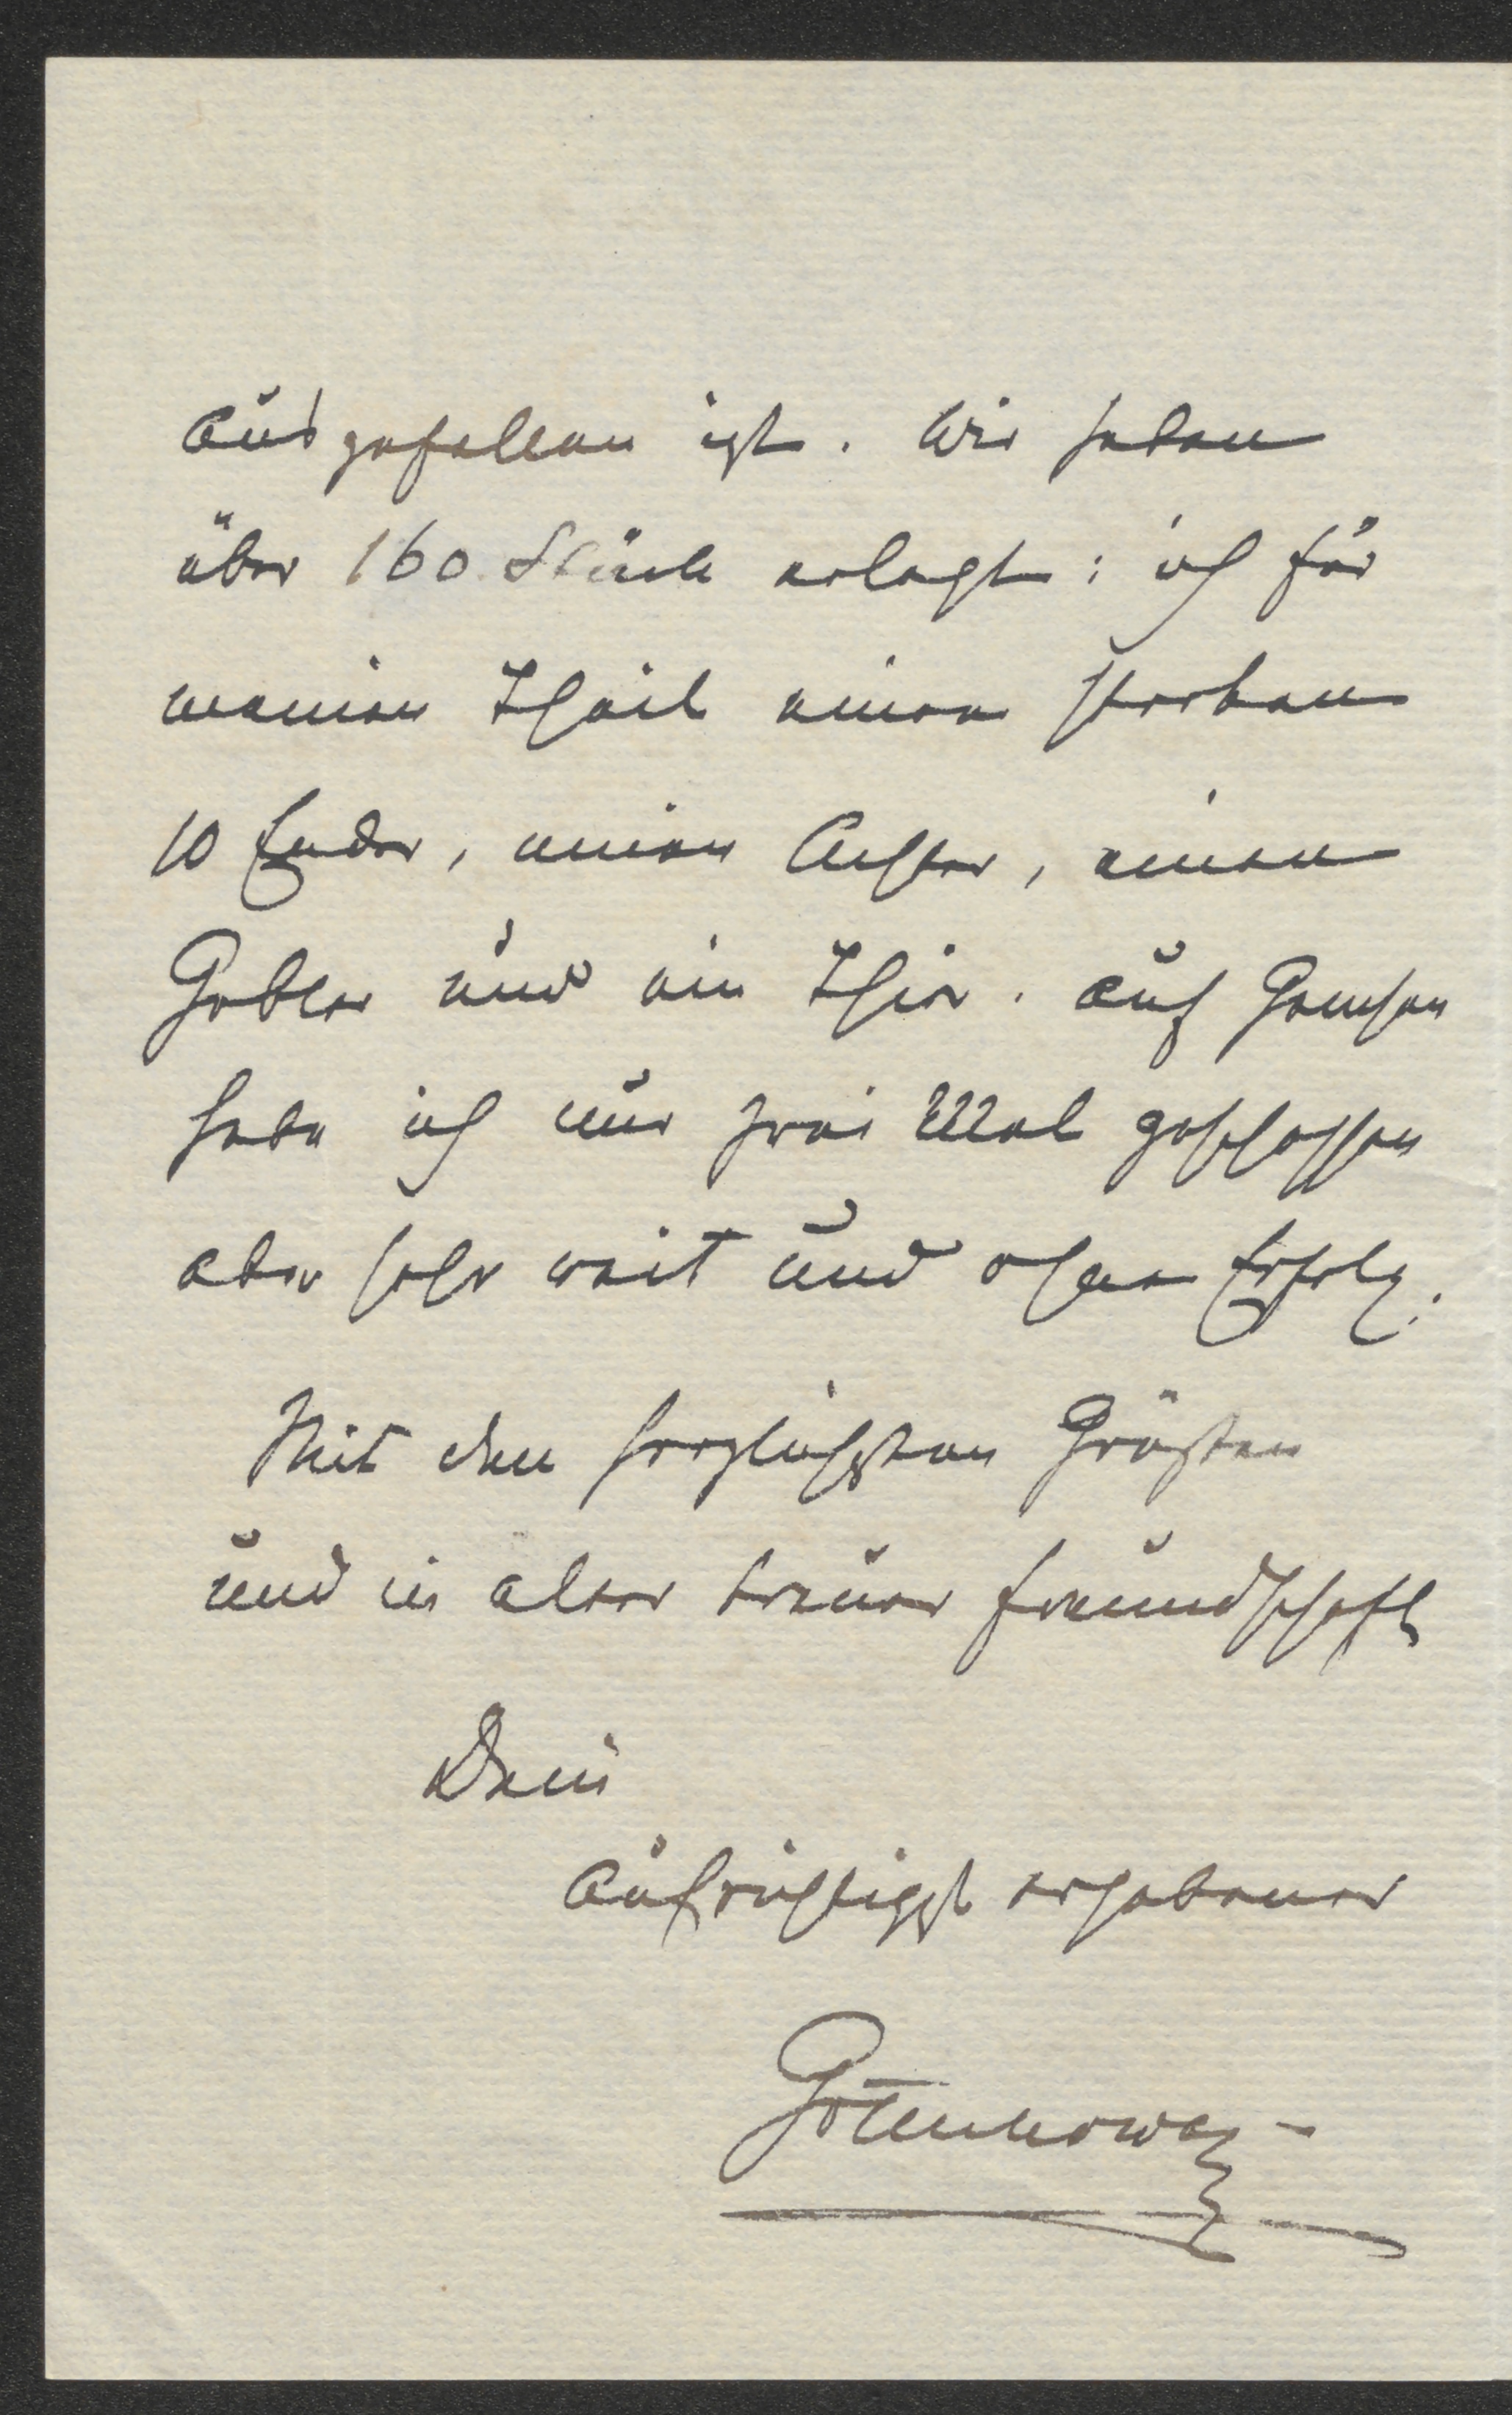 ausgefallen ist. Wir haben
über 160 Stück erlegt: ich für
meinen Theil einen starken
10 Ender, einen Achter, einen
Gabler und ein Thier. Auf Gemsen
habe ich nur zwei Mal geschossen
aber sehr weit und ohne Erfolg.
Mit den herzlichsten Grüßen
und in alter treuer Freundschaft
Dein
aufrichtigst ergebener